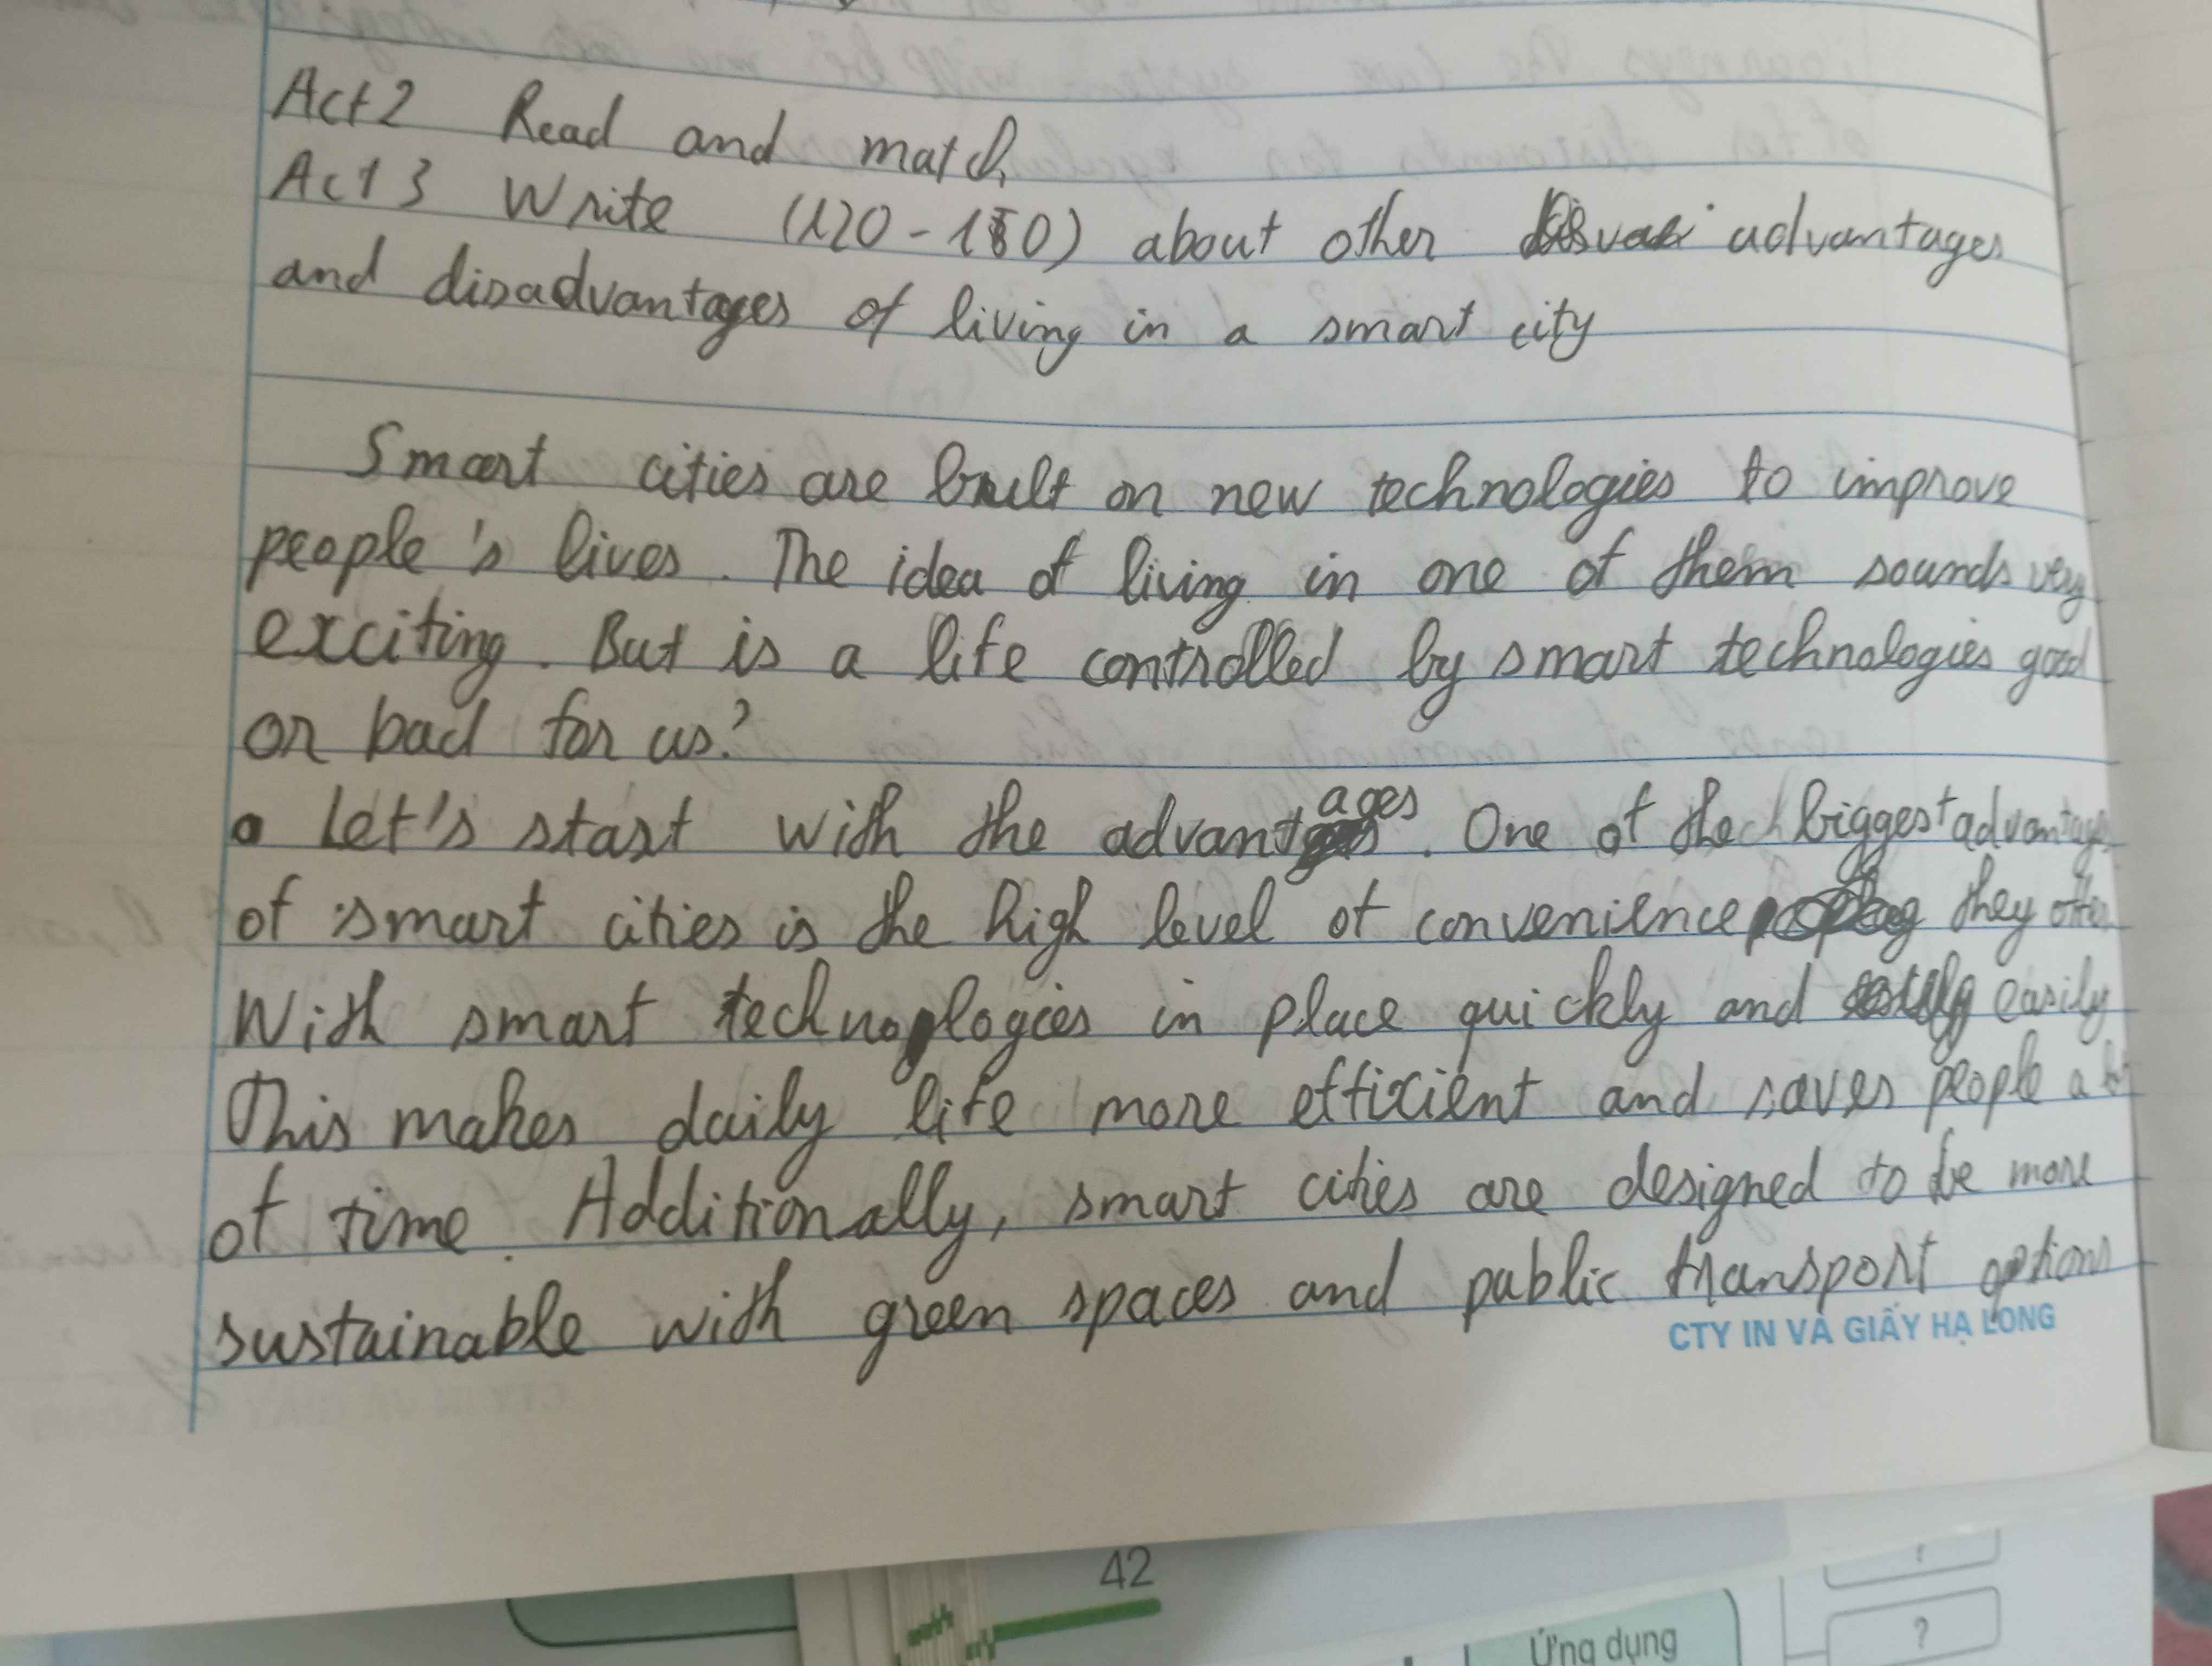 Act 2 Read and match
Act 3 Write (120 - 150) about other advantages
and disadvantages of living in a smart city
Smart cities are built on new technologies to improve
people's lives. The idea of living in one of them sounds very
exciting. But is a life controlled by smart technologies good
or bad for us?
Let's start with the advantages. One of the biggest advantages
of smart cities is the high level of convenience they offer
With smart technologies in place quickly and easily
This makes daily life more efficient and saves people a
of time. Additionally, smart cities are designed to be more
sustainable with green spaces and public transport options
CTY IN VÀ GIẤY HẠ LONG
42
Ứng dụng
?